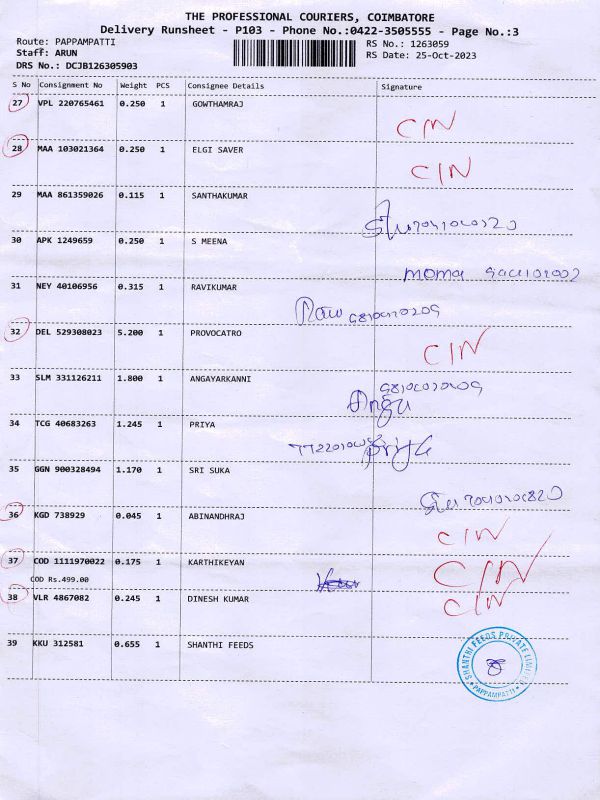 THE PROFESSIONAL COURIERS, COIMBATORE
Delivery Runsheet - P103 - Phone No.:0422-3505555 - Page No.:3
Route: PAPPAMPATTI RS No.: 1263059
Staff: ARUN RS Date: 25-Oct-2023
DRS No.: DCJB126305903
S No Consignment No Weight PCS Consignee Details Signature
27 VPL 220765461 0.250 1 GOWTHAMRAJ
C/N
28 MAA 103021364 0.250 1 ELGI SAVER
C/N
29 MAA 861359026 0.115 1 SANTHAKUMAR
30 APK 1249659 0.250 1 S MEENA
31 NEY 40106956 0.315 1 RAVIKUMAR
32 DEL 529308023 5.200 1 PROVOCATRO
C/N
33 SLM 331126211 1.800 1 ANGAYARKANNI
34 TCG 40683263 1.245 1 PRIYA
35 GGN 900328494 1.170 1 SRI SUKA
36 KGD 738929 0.045 1 ABINANDHRAJ
C/N
37 COD 1111970022 0.175 1 KARTHIKEYAN
C/N
COD Rs.499.00
38 VLR 4867082 0.245 1 DINESH KUMAR
C/N
39 KKU 312581 0.655 1 SHANTHI FEEDS
SHANTHI FEEDS PRIVATE LIMITED
PAPPAMPATTI